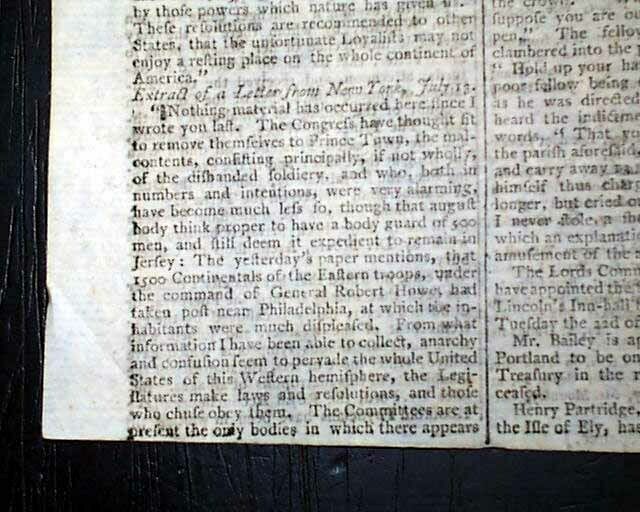 by those powers which nature has given us.
These resolutions are recommended to other
States, that the unfortunate Loyalists may not
enjoy a resting place on the whole continent of
America."
Extract of a Letter from New York, July 13.
"Nothing material has occurred here since I
wrote you last. The Congress have thought fit
to remove themselves to Prince Town, the mal-
contents, consisting principally, if not wholly,
of the disbanded soldiery, and who, both in
numbers and intentions, were very alarming,
have become much less so, though that august
body think proper to have a body guard of 500
men, and still deem it expedient to remain in
Jersey: The yesterday's paper mentions, that
1500 Continentals of the Eastern troops, under
the command of General Robert Howe, had
taken post near Philadelphia, at which the in-
habitants were much displeased. From what
information I have been able to collect, anarchy
and confusion seem to pervade the whole United
States of this Western hemisphere, the Legi-
slatures make laws and resolutions, and those
who chuse obey them. The Committees are at
present the only bodies in which there appears
the crown.
suppose you are
pen," The fellow
clambered into the
" Hold up your ha
poor fellow being
as he was directed
heard the indictme
words, " That yo
the parish aforesaid
and carry away
himself thus char
longer, but cried ou
I never stole a
which an explanati
amusement of the
The Lords Com
have appointed the
Lincoln's Inn-hall
Tuesday the 22d of
Mr. Bailey is ap
Portland to be on
Treasury in the r
ceased.
Henry Partridge,
the Isle of Ely, has